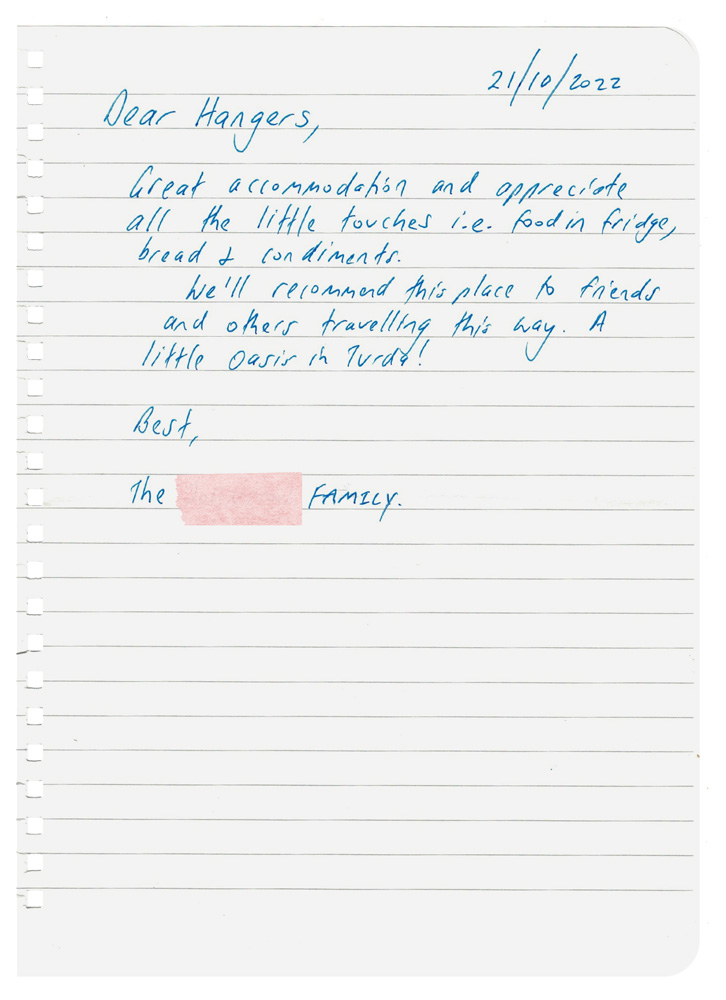 21/10/2022
Dear Hangers,
Great accommodation and appreciate
all the little touches i.e. food in fridge,
bread & condiments.
We'll recommend this place to friends
and others travelling this way. A
little Oasis in Turda!
Best,
The FAMILY.